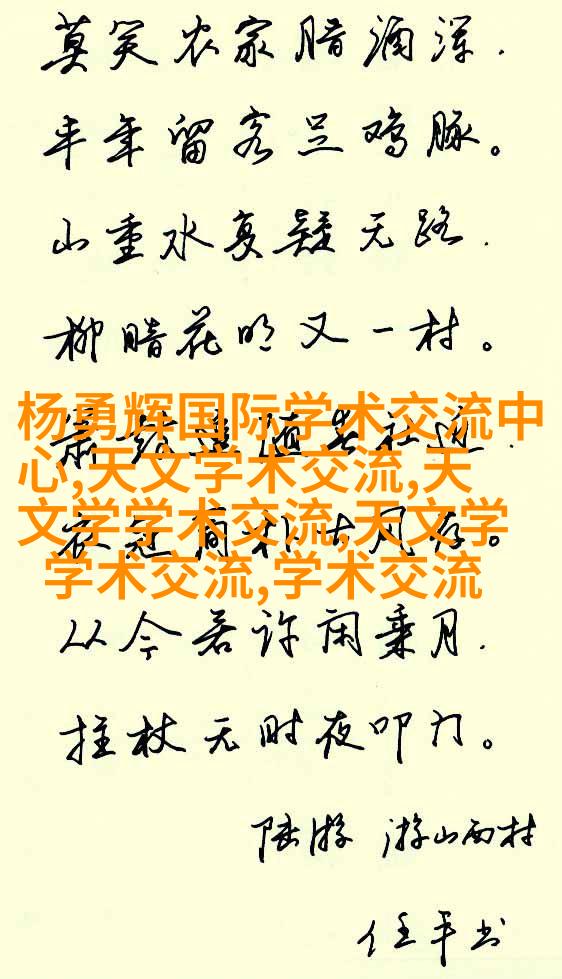 莫笑农家腊酒浑.
丰年留客足鸡豚。
山重水复疑无路.
柳暗花明又一村。
杨勇辉国际学术交流中
心,天文学术交流,天
文学学术交流,天文学
学术交流,学术交流
箫鼓追随春社近.
衣冠简朴古风存。
从今若许闲乘月.
拄杖无时夜叩门。
陆游 游山西村
任平书